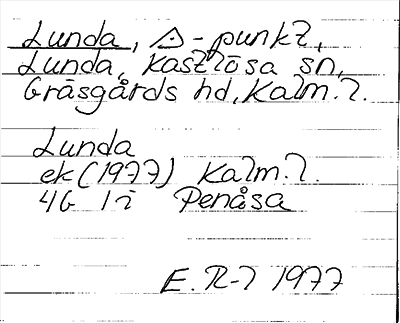 Lunda, △-punkt,
Lunda, Kastlösa sn,
Gräsgårds hd, Kalm. l.
Lunda
ek (1977) Kalm. l.
4G 1i Penåsa
E. R-l 1977